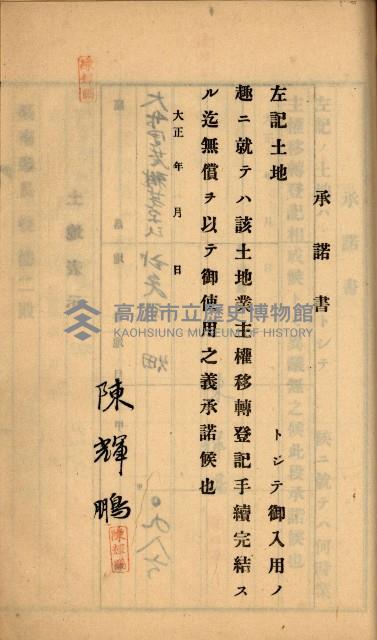 承諾書
左記土地　　　トシテ御入用ノ
趣ニ就テハ該土地業主權移轉登記手續完結ス
ル迄無償ヲ以テ御使用之義承諾候也
大正　年　月　日
陳輝鵬
陳輝鵬
高雄市立歷史博物館
KAOHSIUNG MUSEUM OF HISTORY